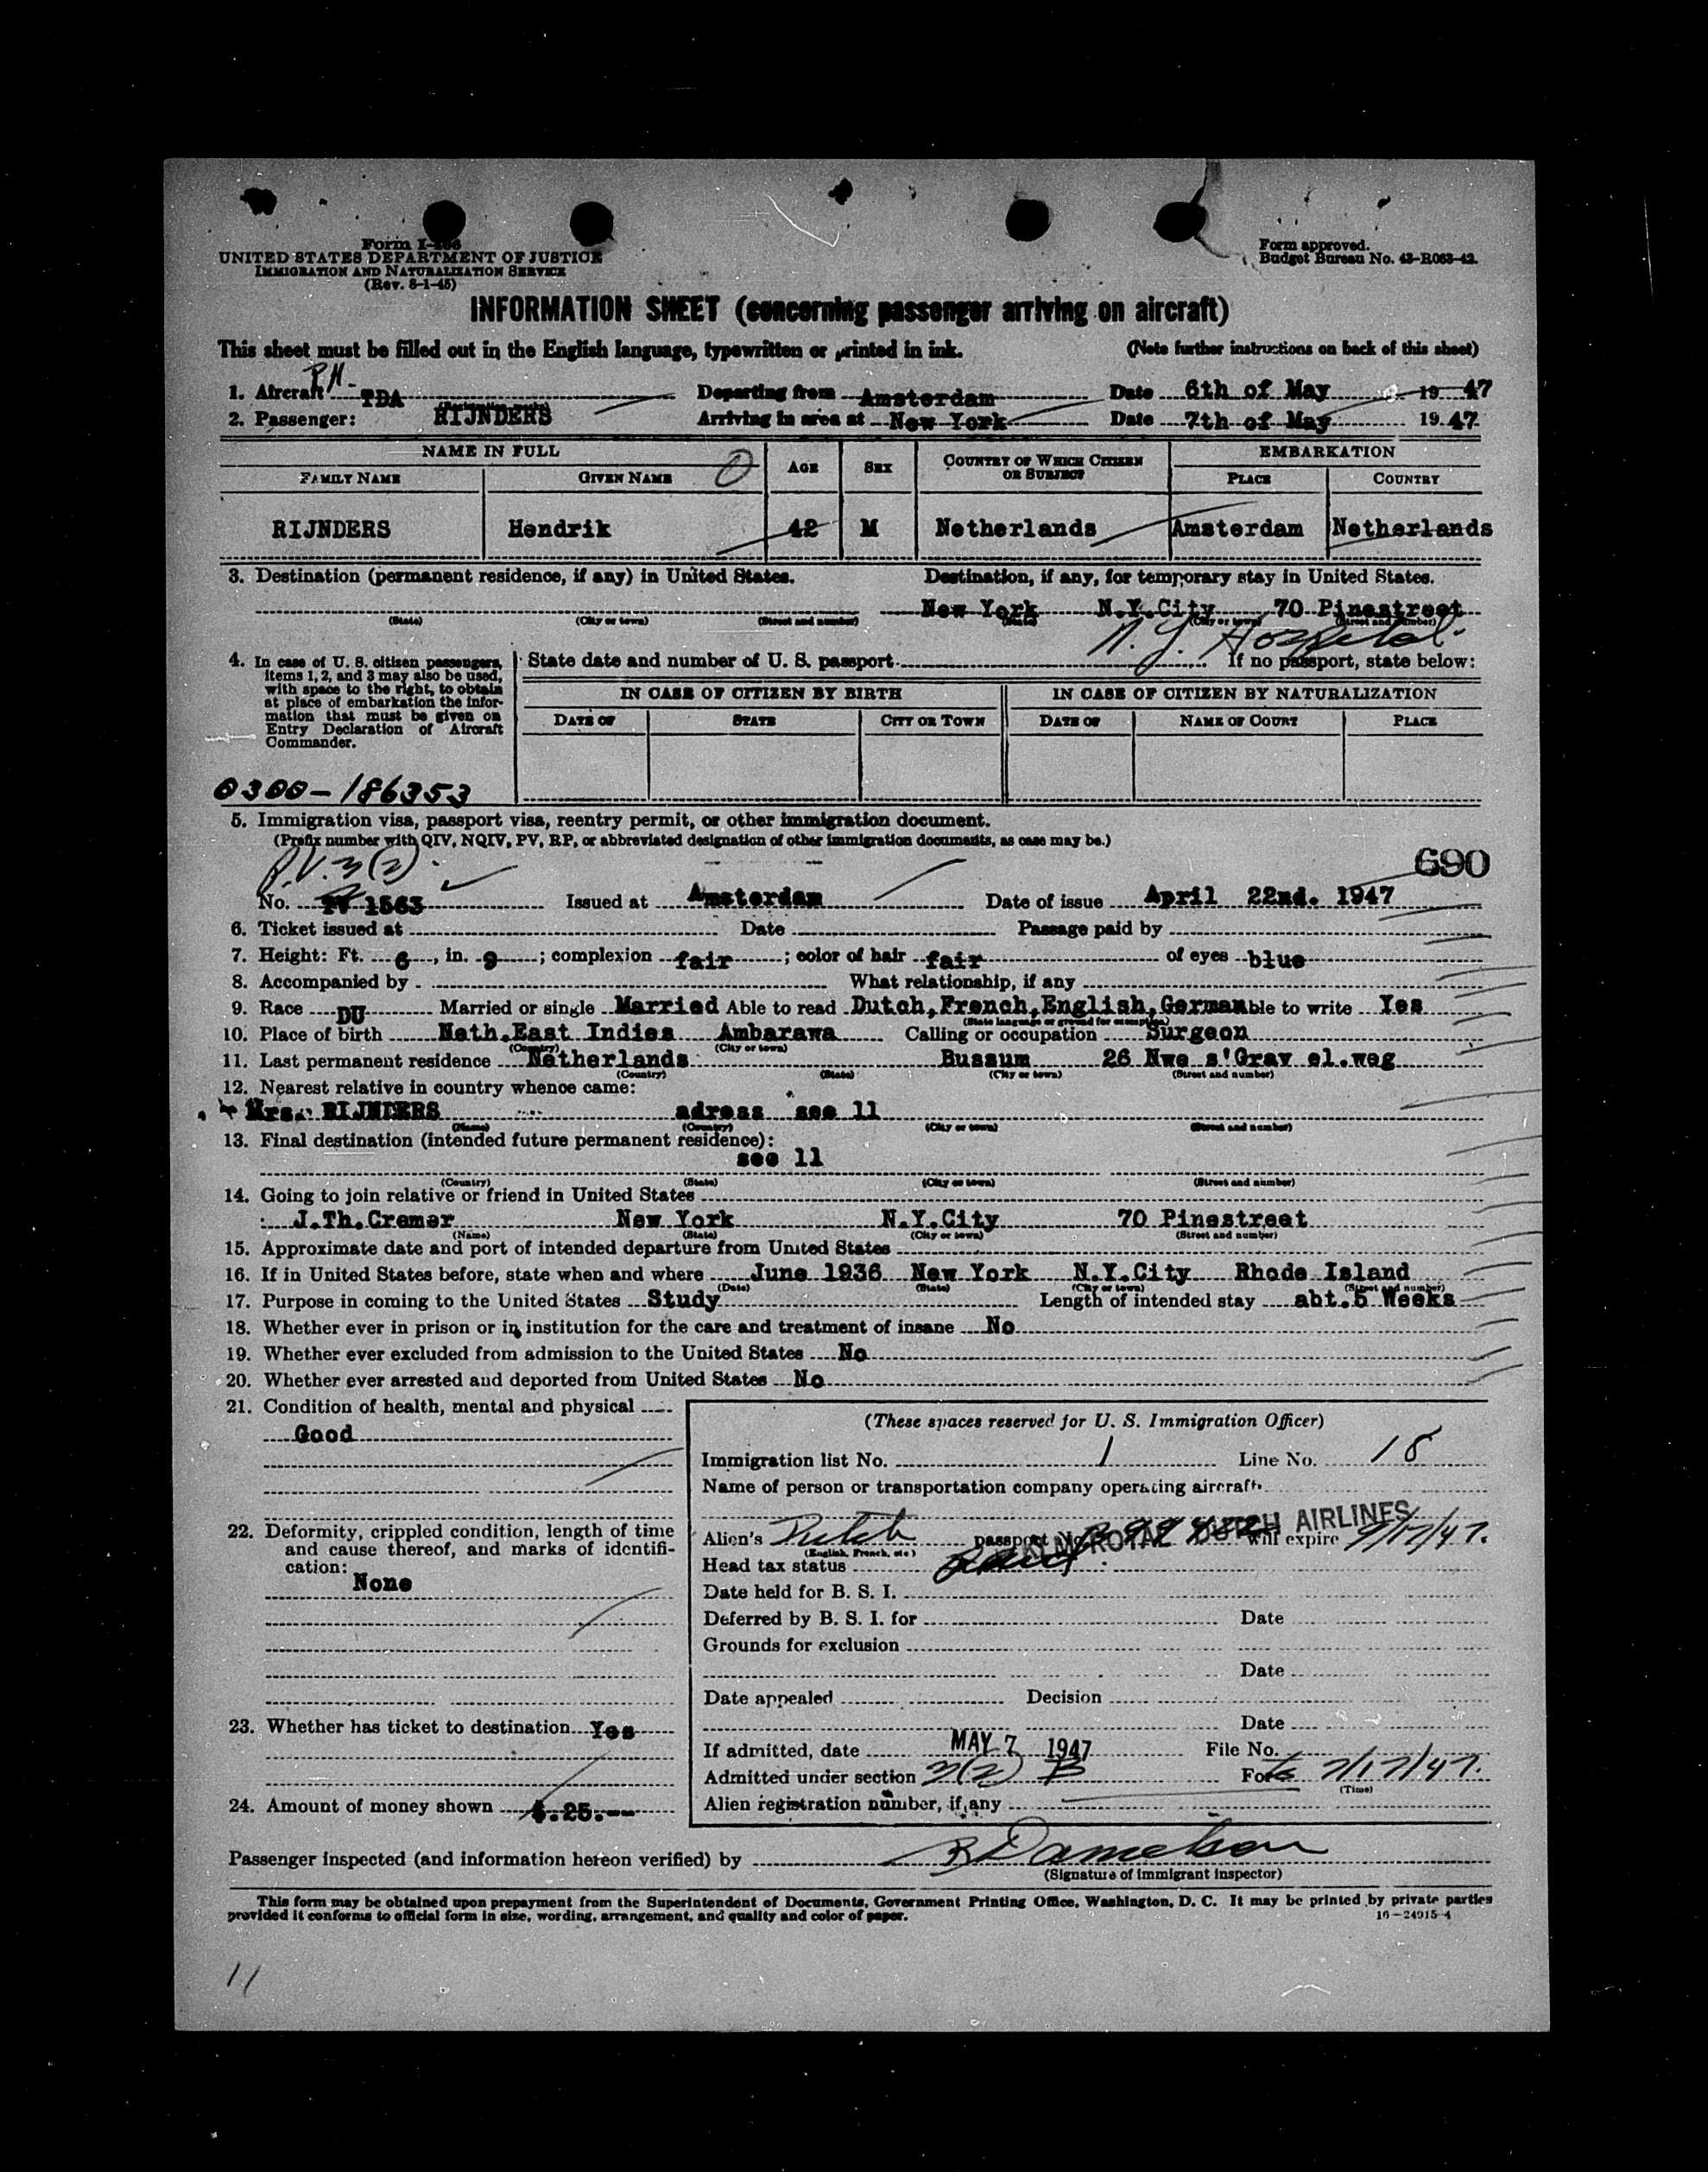 Form I-466
UNITED STATES DEPARTMENT OF JUSTICE
IMMIGRATION AND NATURALIZATION SERVICE
(Rev. 8-1-45)
Form approved.
Budget Bureau No. 43-R063-42.
INFORMATION SHEET (concerning passenger arriving on aircraft)
This sheet must be filled out in the English language, typewritten or printed in ink. (Note further instructions on back of this sheet)
1. Aircraft PH- TDA Departing from Amsterdam Date 6th of May 19 47
2. Passenger: RIJNDERS Arriving in area at New York Date 7th of May 19 47
NAME IN FULL AGE SEX COUNTRY OF WHICH CITIZEN OR SUBJECT EMBARKATION
FAMILY NAME GIVEN NAME PLACE COUNTRY
RIJNDERS Hendrik 42 M Netherlands Amsterdam Netherlands
3. Destination (permanent residence, if any) in United States. Destination, if any, for temporary stay in United States.
New York N.Y.City 70 Pinestreet
(State) (City or town) (Street and number) (State) (City or town) (Street and number)
N.Y. Hospital
4. In case of U. S. citizen passengers, items 1, 2, and 3 may also be used, with space to the right, to obtain at place of embarkation the information that must be given on Entry Declaration of Aircraft Commander.
State date and number of U. S. passport If no passport, state below:
IN CASE OF CITIZEN BY BIRTH IN CASE OF CITIZEN BY NATURALIZATION
DATE OF STATE CITY OR TOWN DATE OF NAME OF COURT PLACE
0300-186353
5. Immigration visa, passport visa, reentry permit, or other immigration document.
(Prefix number with QIV, NQIV, PV, RP, or abbreviated designation of other immigration documents, as case may be.)
P.V. 3(2) 690
No. PV 1563 Issued at Amsterdam Date of issue April 22nd. 1947
6. Ticket issued at Date Passage paid by
7. Height: Ft. 6, in. 9; complexion fair; color of hair fair of eyes blue
8. Accompanied by What relationship, if any
9. Race DU Married or single Married Able to read Dutch,French,English,German able to write Yes
(State language or ground for exemption)
10. Place of birth Neth.East Indies Ambarawa Calling or occupation Surgeon
(Country) (City or town)
11. Last permanent residence Netherlands Bussum 26 Nwe s'Grav el.weg
(Country) (State) (City or town) (Street and number)
12. Nearest relative in country whence came:
Mrs. RIJNDERS adress see 11
(Name) (Country) (City or town) (Street and number)
13. Final destination (intended future permanent residence):
see 11
(Country) (State) (City or town) (Street and number)
14. Going to join relative or friend in United States
J.Th.Cremer New York N.Y.City 70 Pinestreet
(Name) (State) (City or town) (Street and number)
15. Approximate date and port of intended departure from United States
16. If in United States before, state when and where June 1936 New York N.Y.City Rhode Island
(Date) (State) (City or town) (Street and number)
17. Purpose in coming to the United States Study Length of intended stay abt.5 Weeks
18. Whether ever in prison or in institution for the care and treatment of insane No
19. Whether ever excluded from admission to the United States No
20. Whether ever arrested and deported from United States No
21. Condition of health, mental and physical
Good
22. Deformity, crippled condition, length of time and cause thereof, and marks of identification:
None
23. Whether has ticket to destination Yes
24. Amount of money shown $.25.--
(These spaces reserved for U. S. Immigration Officer)
Immigration list No. 1 Line No. 18
Name of person or transportation company operating aircraft
KLM ROYAL DUTCH AIRLINES
Alien's Dutch passport No. will expire 9/17/47.
(English, French, etc.)
Head tax status
Date held for B. S. I.
Deferred by B. S. I. for Date
Grounds for exclusion
Date
Date appealed Decision
Date
If admitted, date MAY 7 1947 File No.
Admitted under section 3(2) B For to 7/17/47.
(Time)
Alien registration number, if any
Passenger inspected (and information hereon verified) by B Danielson
(Signature of immigrant inspector)
This form may be obtained upon prepayment from the Superintendent of Documents, Government Printing Office, Washington, D. C. It may be printed by private parties
provided it conforms to official form in size, wording, arrangement, and quality and color of paper. 16-24915-4
11